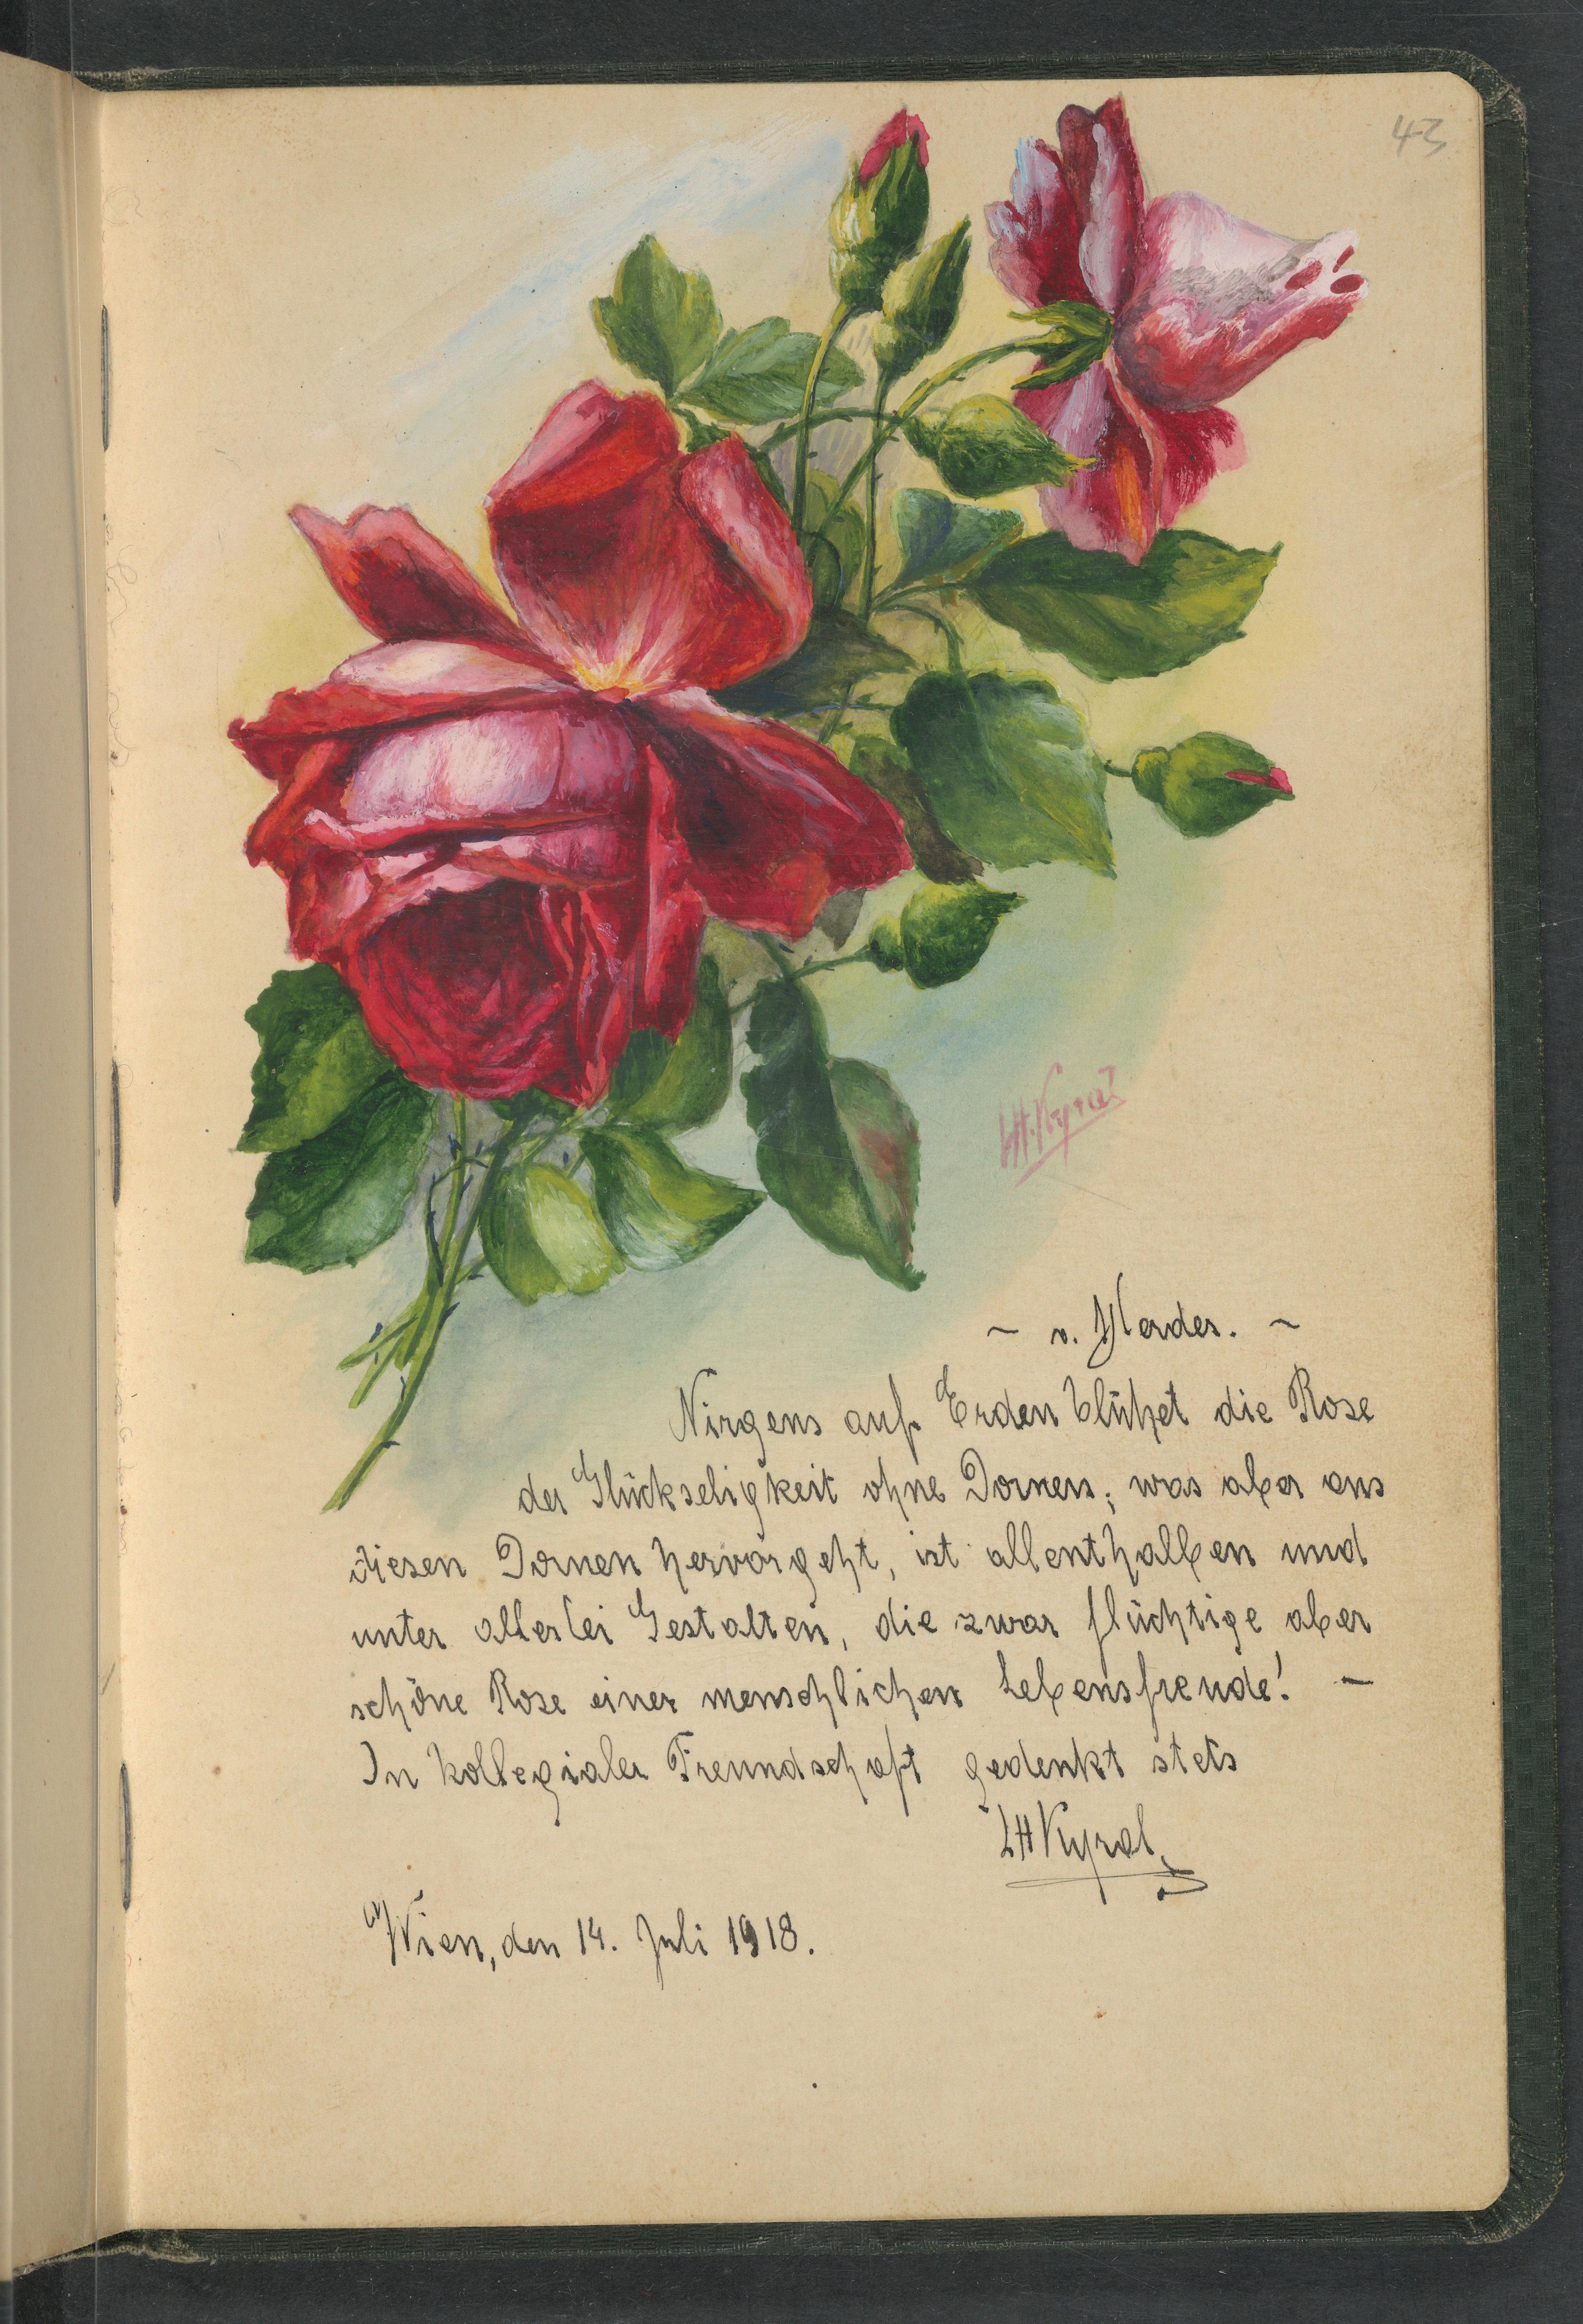 43
LH. Kyral
~ v. Herder. ~
Nirgens auf Erden blühet die Rose
der Glückseligkeit ohne Dornen; was aber aus
diesen Dornen hervorgeht, ist allenthalben und
unter allerlei Gestalten, die zwar flüchtige aber
schöne Rose einer menschlichen Lebensfreude! –
In kollegialer Freundschaft gedenkt stets
LHKyral
Wien, den 14. Juli 1918.